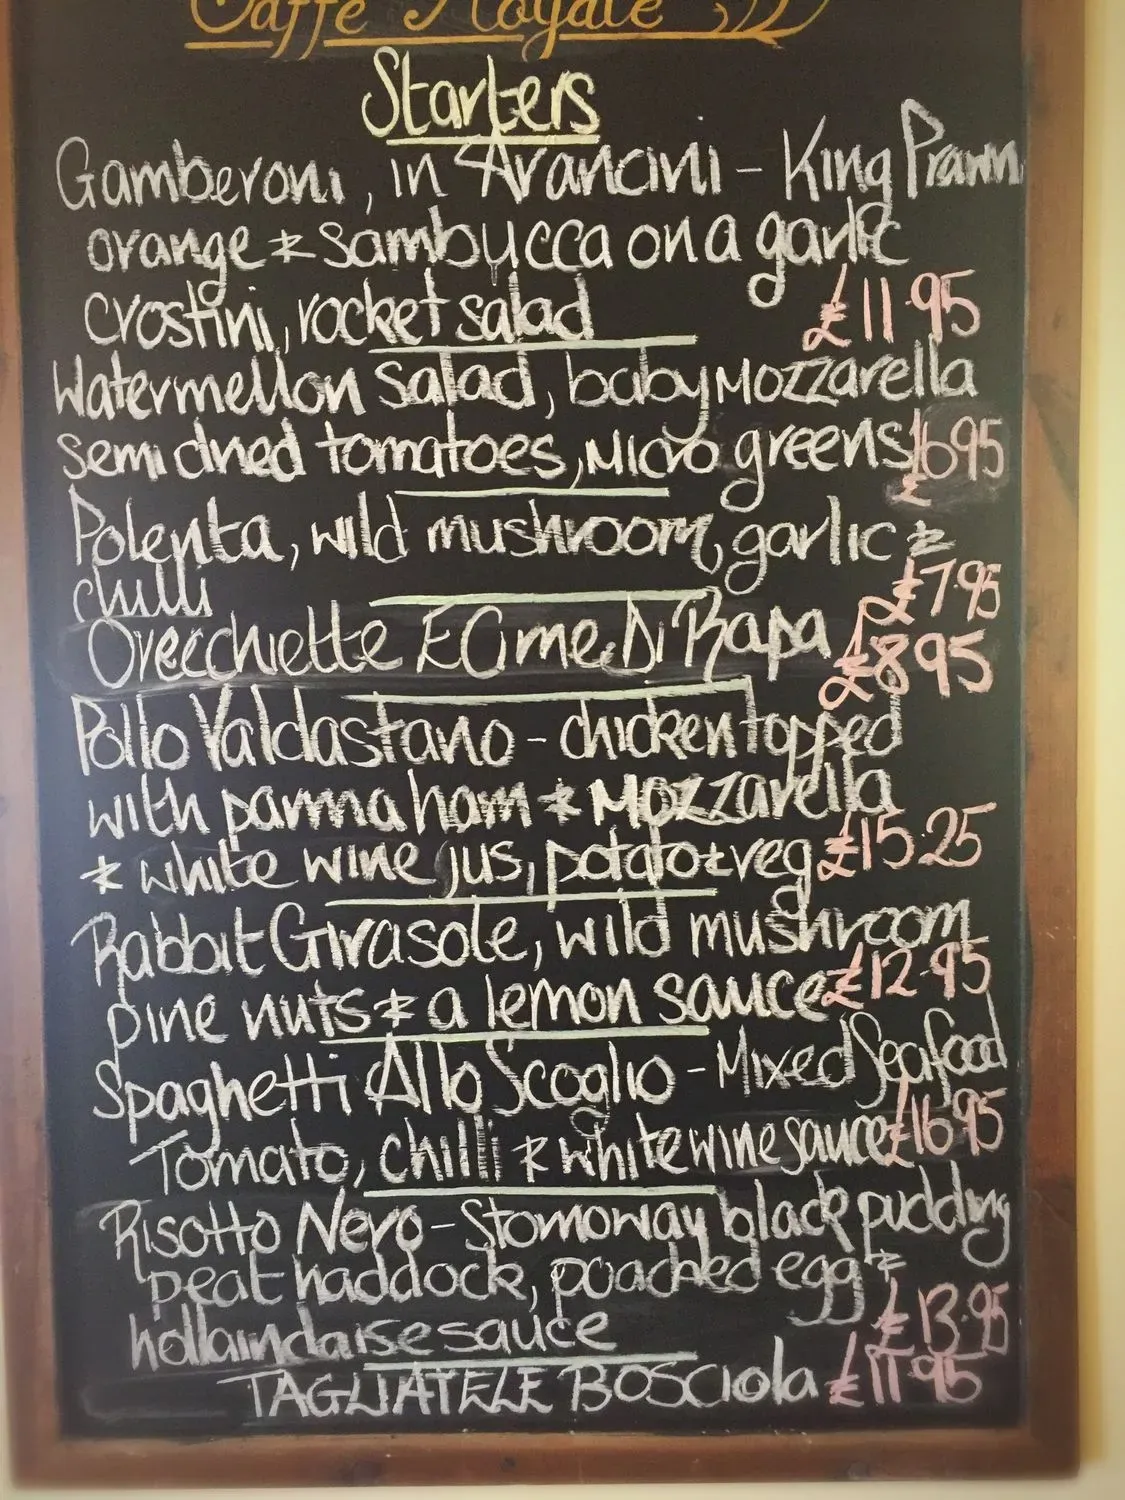 Caffe Royale
Starters
Gamberoni, in Arancini - King Prawn
orange & Sambucca on a garlic
crostini, rocket salad £11.95
Watermellon salad, baby Mozzarella
semi dried tomatoes, Micro greens £6.95
Polenta, wild mushroom, garlic &
chilli £7.95
Orecchiette E Cime Di Rapa £8.95
Pollo Valdastano - chicken topped
with parma ham & Mozzarella
& white wine jus, potato & veg £15.25
Rabbit Girasole, wild mushroom
pine nuts & a lemon sauce £12.95
Spaghetti Allo Scoglio - Mixed Seafood
Tomato, chilli & white wine sauce £16.95
Risotto Nero - Stornoway black pudding
peat haddock, poached egg &
hollaindaise sauce £13.95
TAGLIATELE BOSCiola £11.95